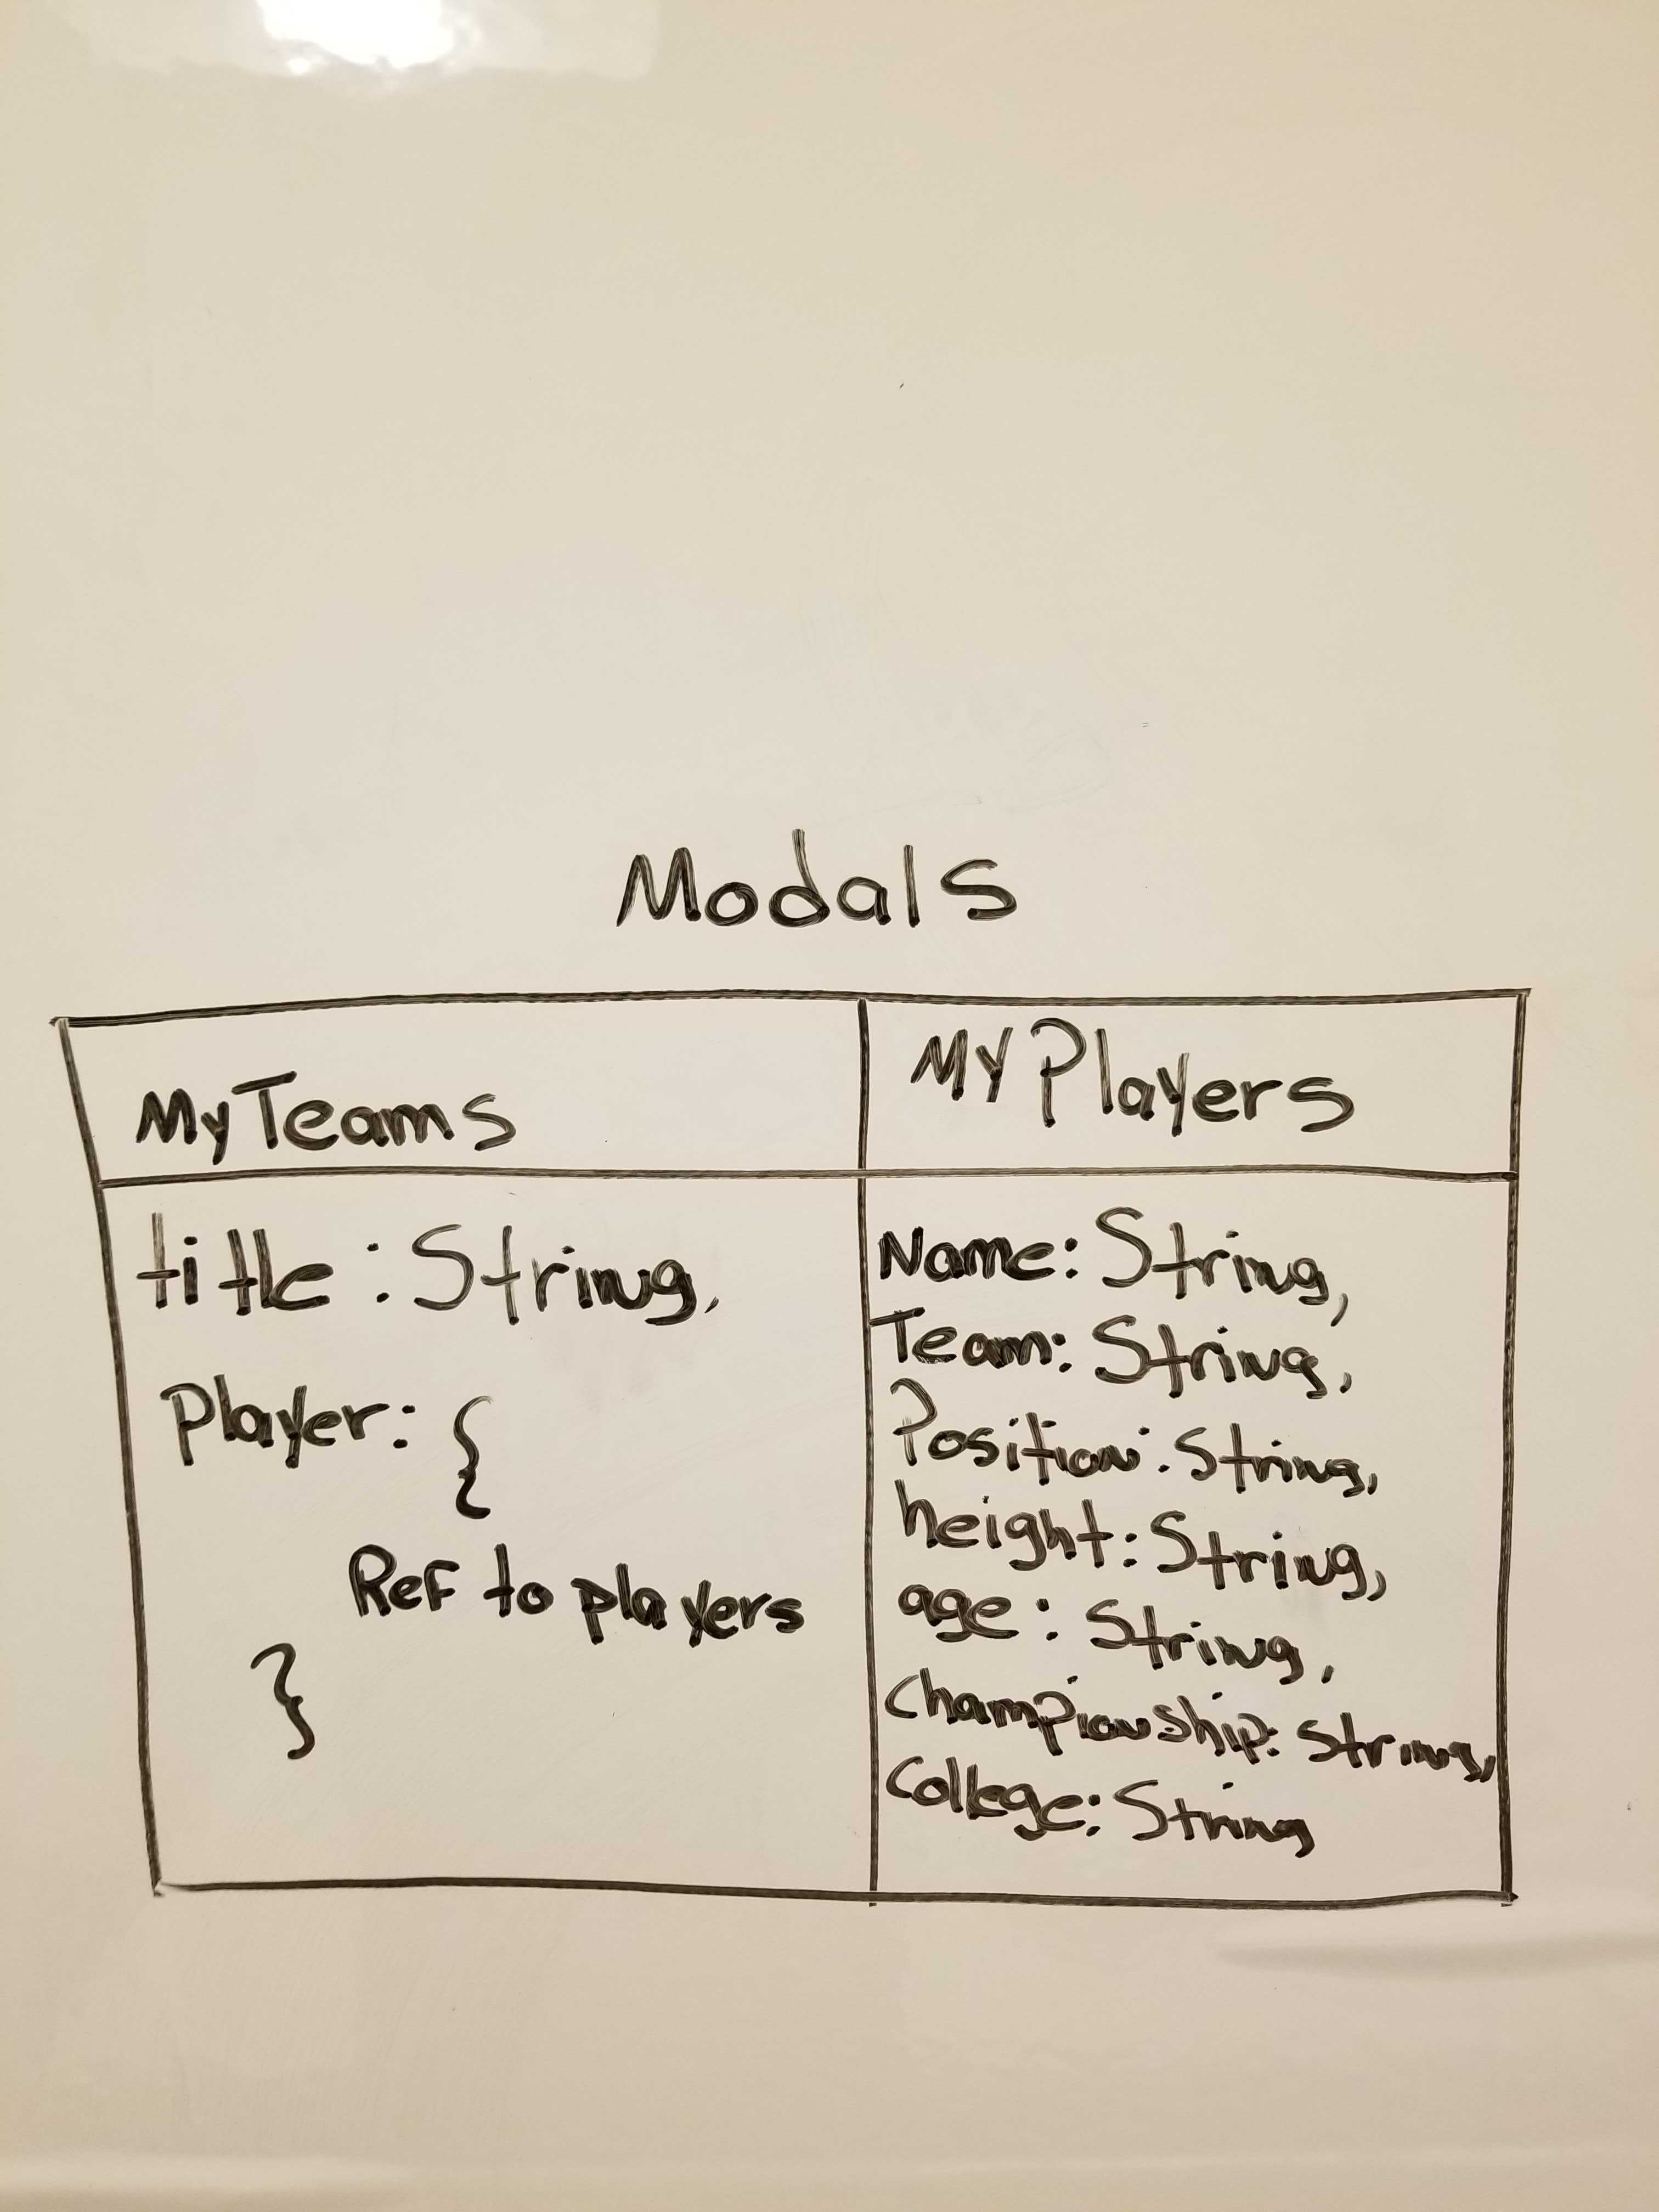 Modals
MyTeams
title: String,
Player: {
Ref to players
}
MyPlayers
Name: String,
Team: String,
Position: String,
height: String,
age: String,
Championship: String,
College: String